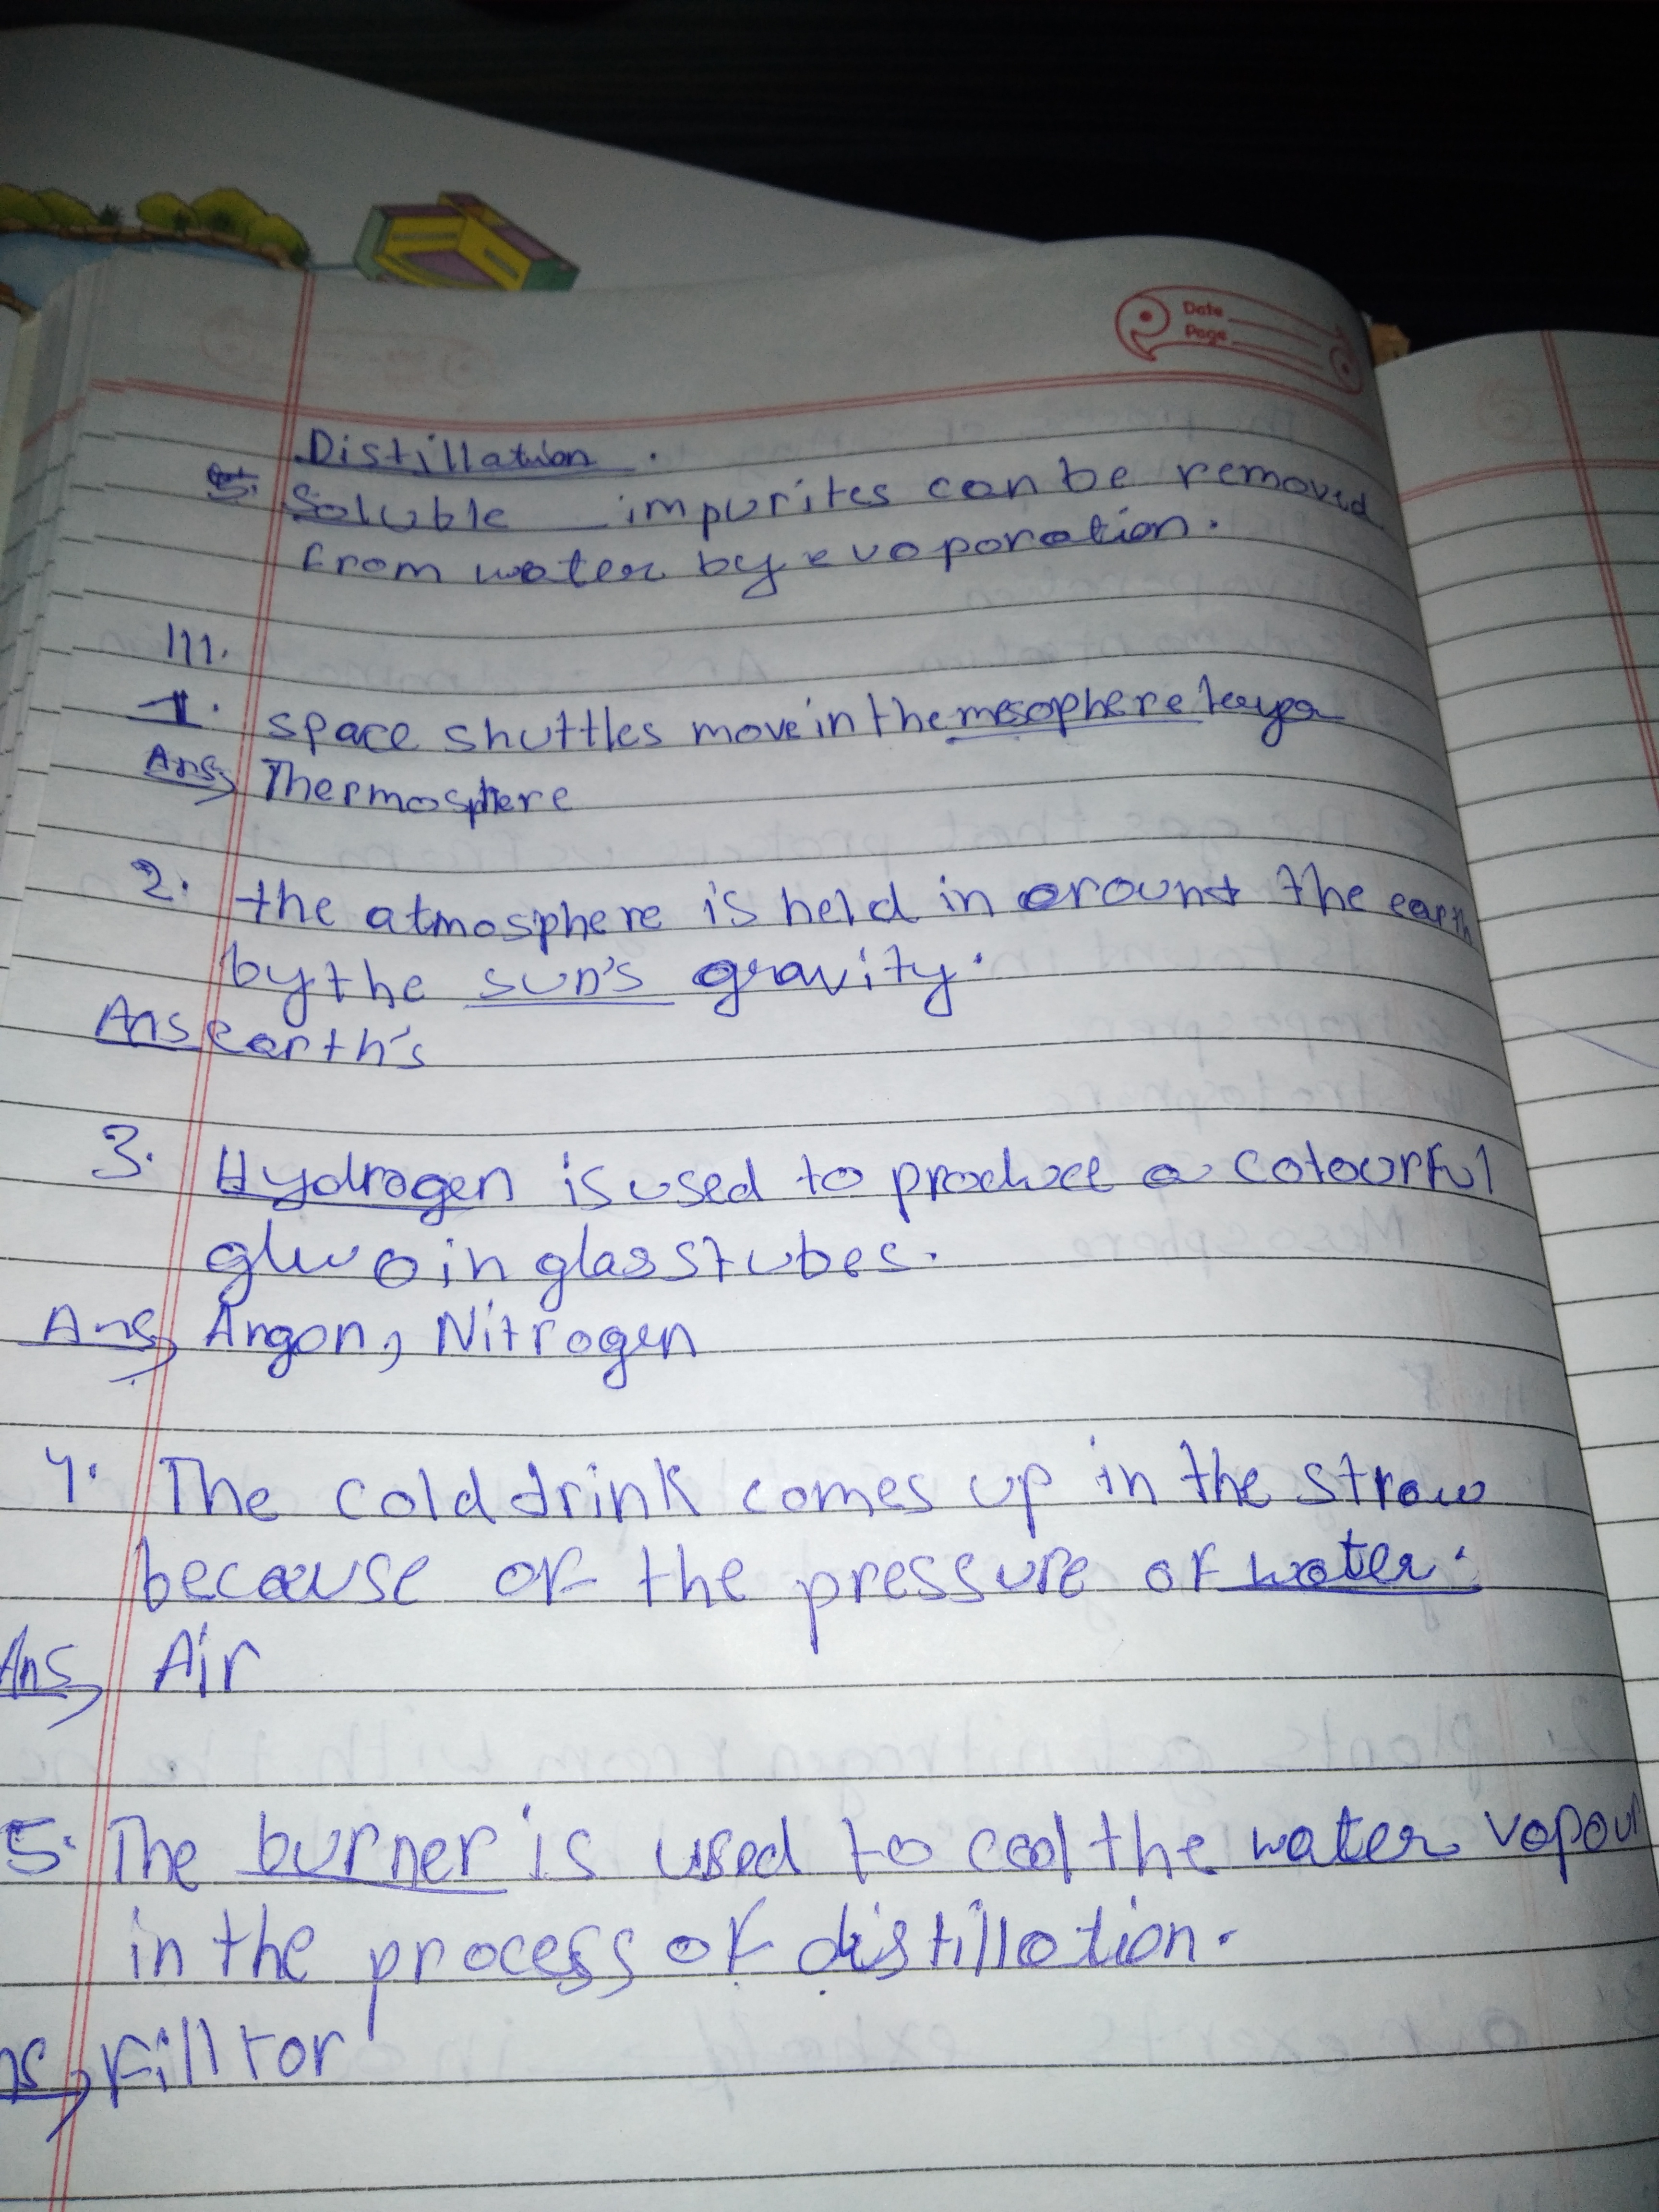 Date
Page
Distillation.
5. Soluble impurites can be removed
from water by evaporation.
111.
1. space shuttles move in the mesophere layer
Ans, Thermosphere
2. the atmosphere is held in around the earth
by the sun's gravity.
Ans earth's
3. Hydrogen is used to produce a colourful
glwo in glass tubes.
Ans, Argon, Nitrogen
4. The cold drink comes up in the straw
because of the pressure of water.
Ans, Air
5. The burner is used to cool the water vapour
in the process of distillation.
ns, Filltor